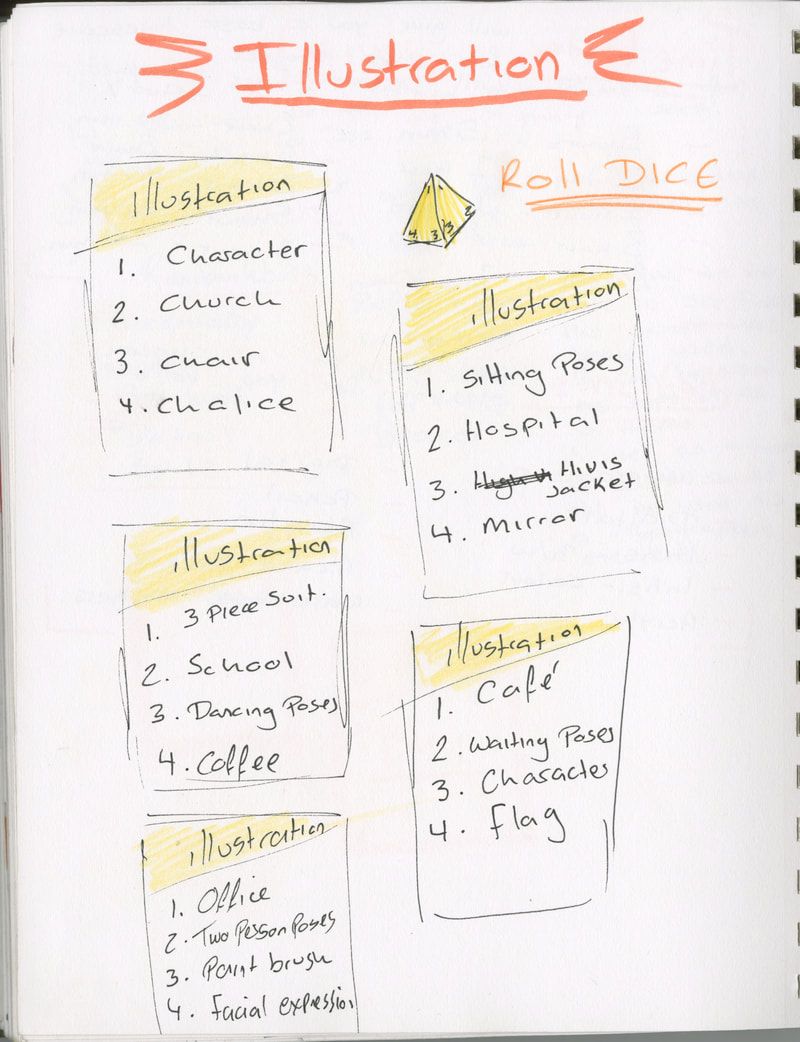 Illustration
Roll DICE
1 1
4 3 3 2
illustration
1. Character
2. Church
3. Chair
4. Chalice
illustration
1. Sitting Poses
2. Hospital
3. Hivis
Jacket
4. Mirror
illustration
1. 3 Piece Suit.
2. School
3. Dancing Poses
4. Coffee
illustration
1. Café
2. Waiting Poses
3. Character
4. Flag
illustration
1. Office
2. Two Person Poses
3. Paint brush
4. Facial expression